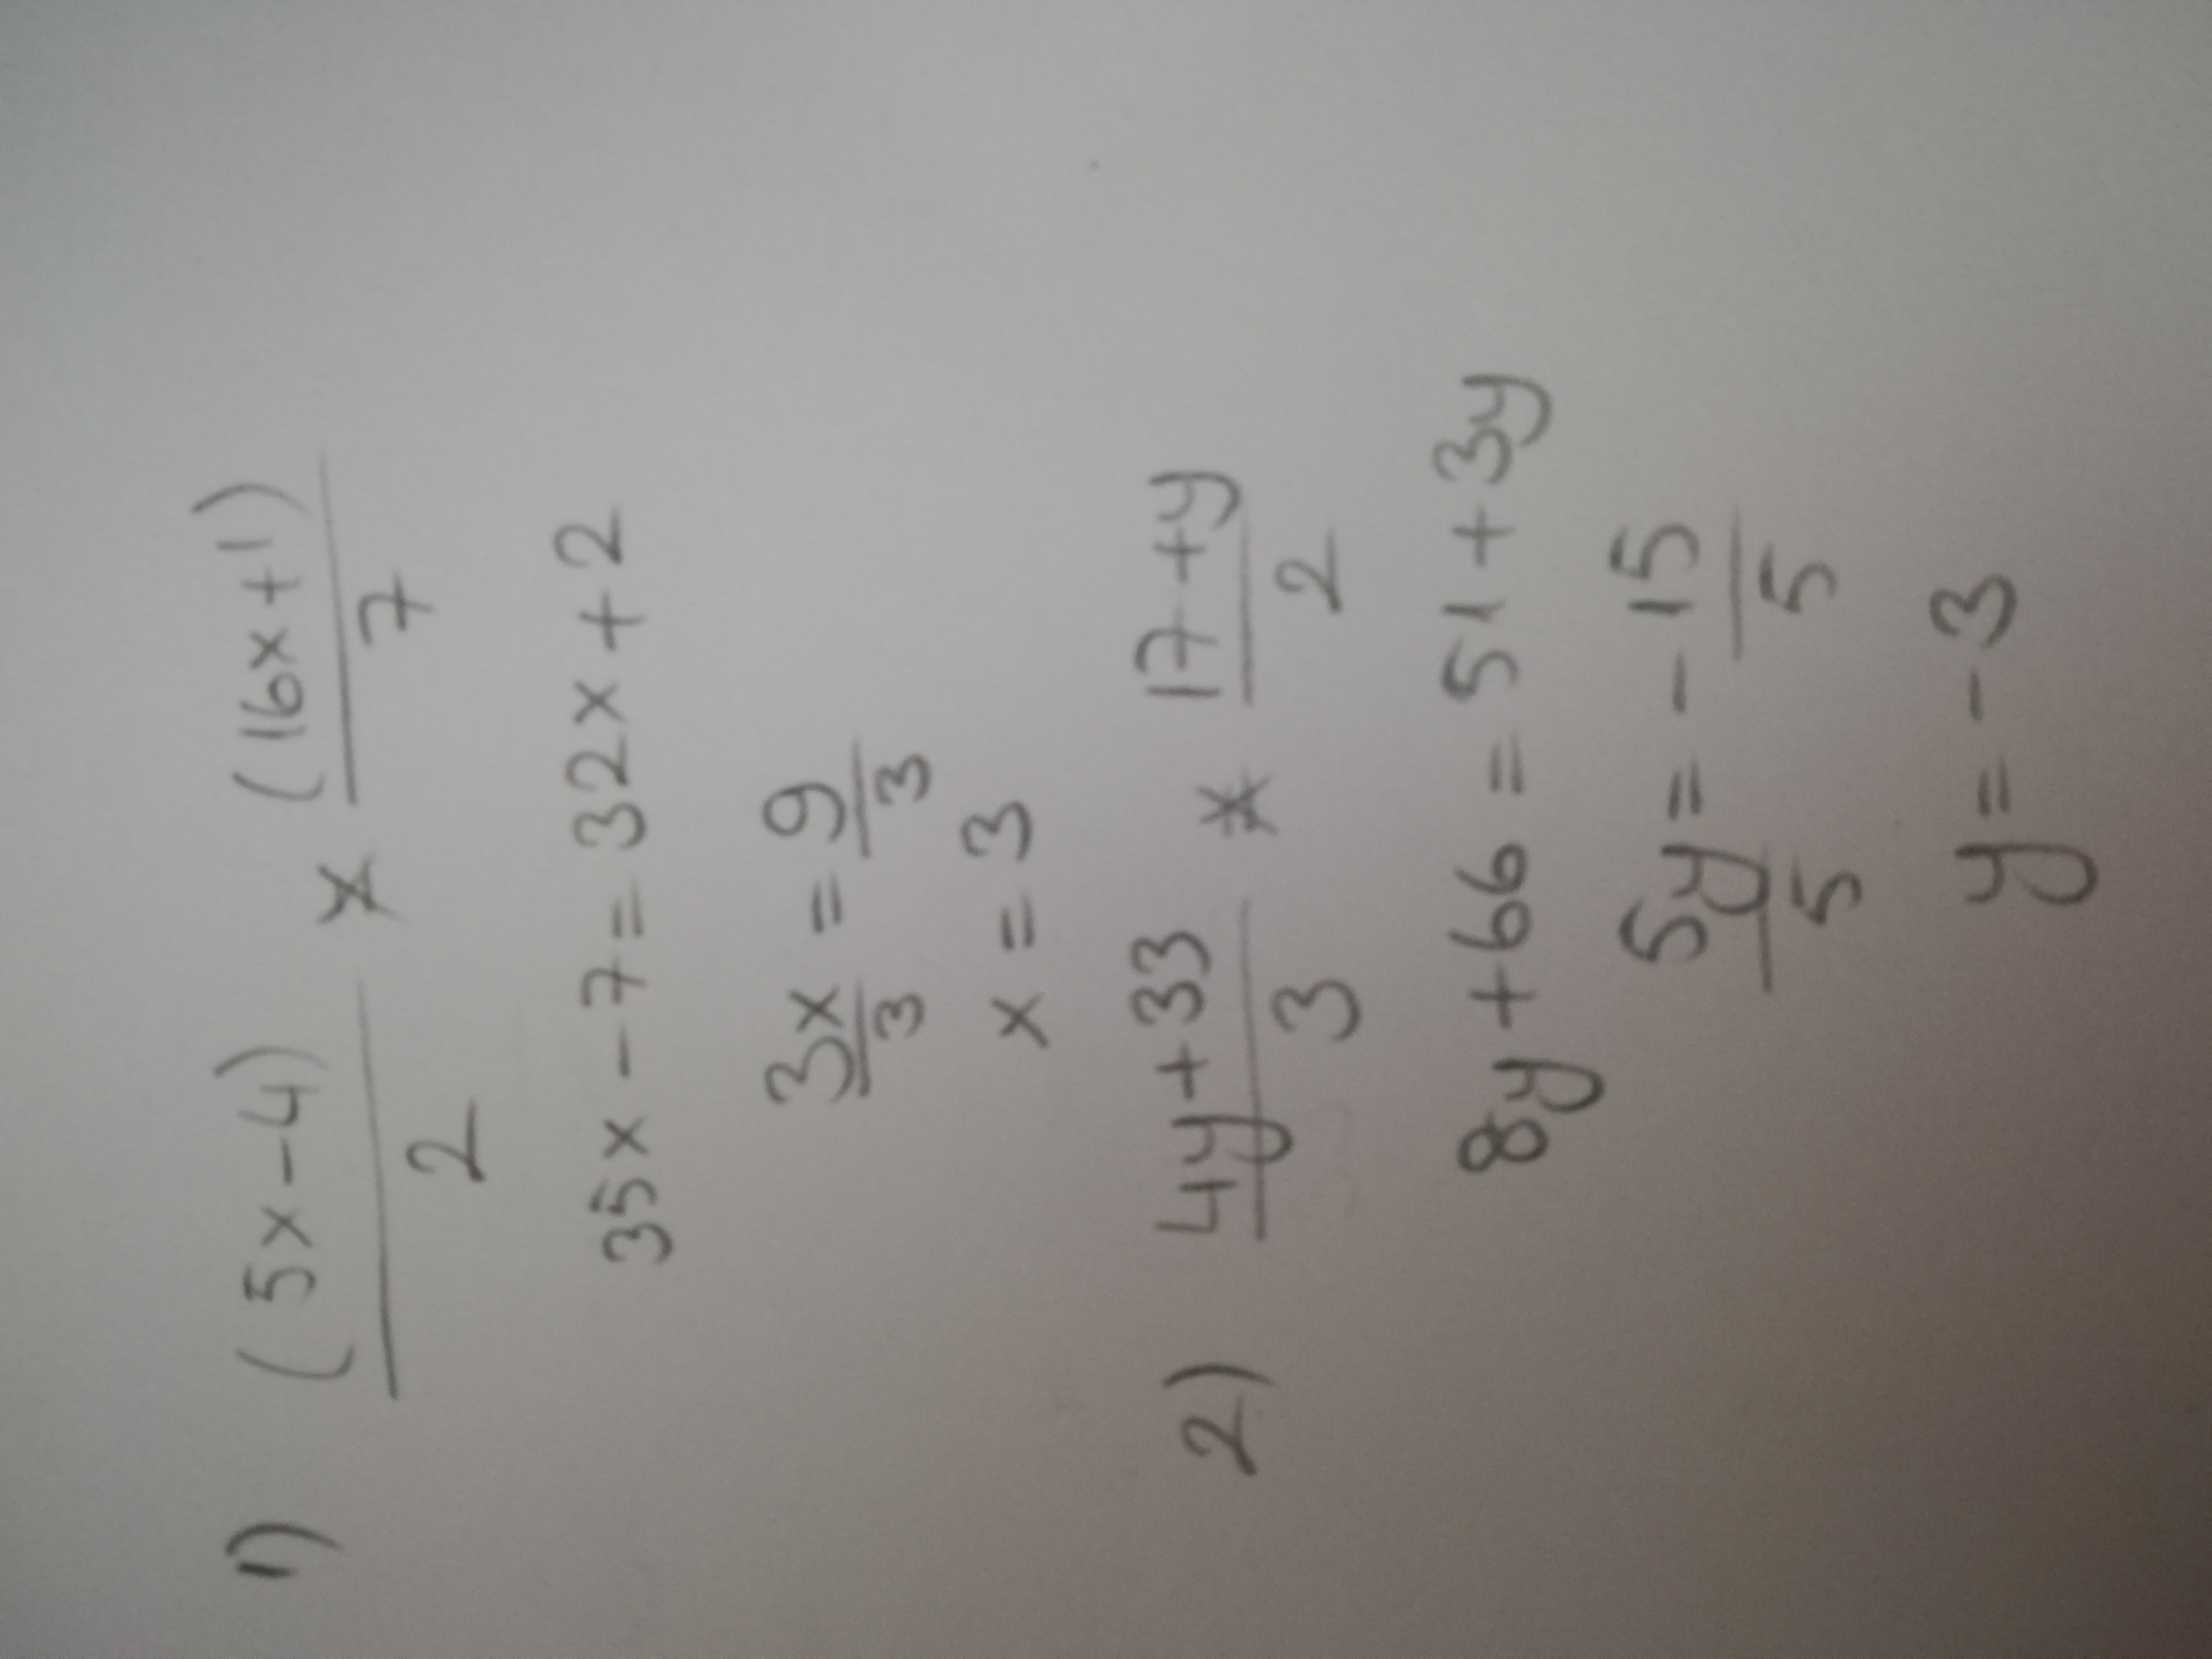 1) (5x-4)/2 x (16x+1)/7
35x - 7 = 32x + 2
3x/3 = 9/3
x = 3
2) 4y+33/3 x 17+y/2
8y + 66 = 51 + 3y
5y/5 = -15/5
y = -3